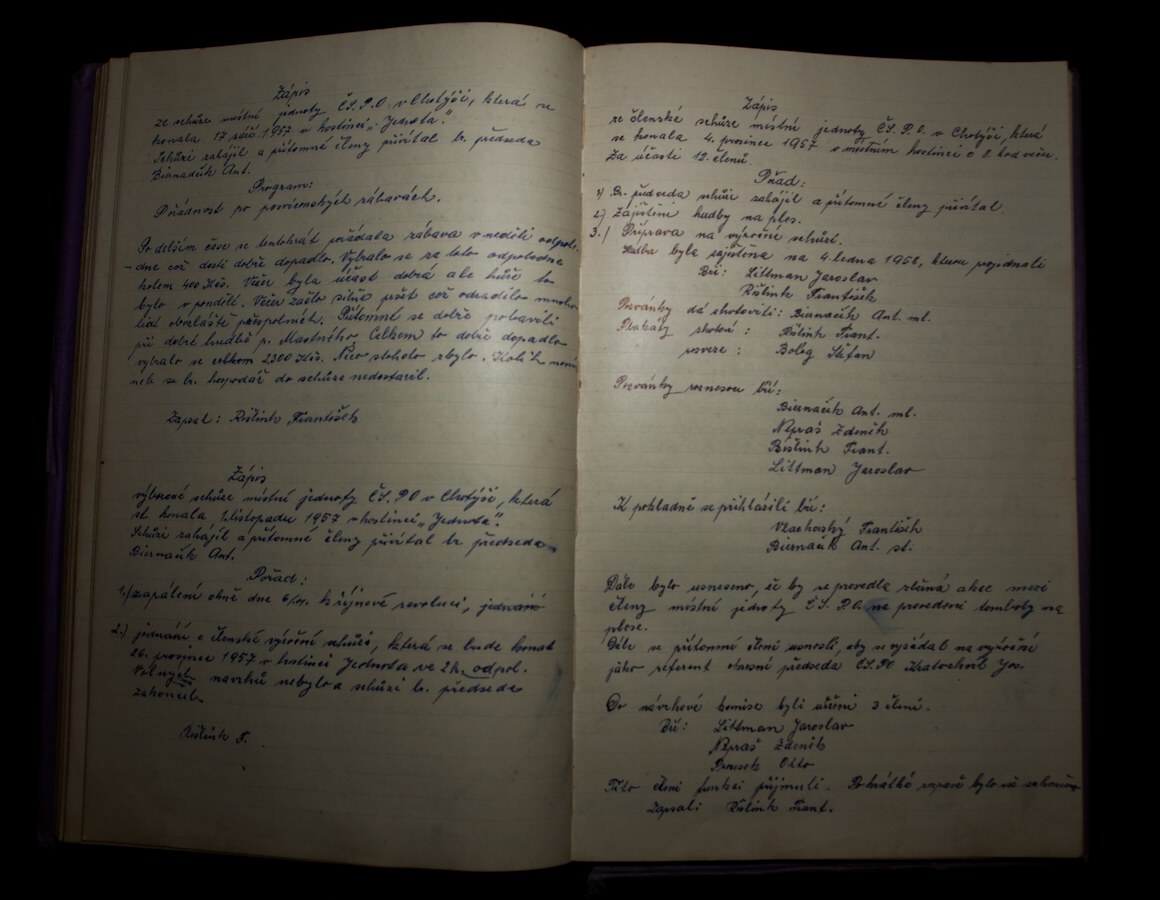 Zápis
ze schůze místní jednoty ČS.P.O. v Chotýči, která se
konala 17 září 1957 v hostinci „Jednota".
Schůzi zahájil a přítomné členy přivítal br. předseda
Biernačík Ant.
Program:
Pořádnost po posvícenských zábavách.
Po delším čase se tentokrát pořádala zábava v neděli odpole-
dne což dosti dobře dopadlo. Vybralo se za toto odpoledne
kolem 400 Kčs. Večer byla účast dobrá ale hůře to
bylo v pondělí. Večer začlo silně pršet což odradilo mnoho
lidí obzvláště přespolních. Přítomní se dobře pobavili
při dobré hudbě p. Mastného. Celkem to dobře dopadlo
vybralo se celkem 2300 Kčs. Něco z tohoto zbylo. Kolik
neb se br. hospodář do schůze nedostavil.
Zapsal: Řištink František
Zápis
výborové schůze místní jednoty ČS.PO v Chotýči, která
se konala 1. listopadu 1957 v hostinci „Jednota".
Schůzi zahájil a přítomné členy přivítal br. předseda
Biernačík Ant.
Pořad:
1.) zapálení ohně dne 6/XI. k říjnové revoluci,
2.) jednání o členské výroční schůzi, která se bude konat
26. prosince 1957 v hostinci Jednota ve 2 h. odpol.
Volných návrhů nebylo a schůzi br. předseda
zakončil.
Řištink F.
Zápis
ze členské schůze místní jednoty ČS.P.O. v Chotýči, která
se konala 4. prosince 1957 v místním hostinci o 8. hod večer.
Za účasti 12. členů.
Pořad:
1) Br. předseda schůzi zahájil a přítomné členy přivítal.
2.) Zajištění hudby na ples.
3.) Příprava na výroční schůzi.
Hudba byla zajištěna na 4. ledna 1958, kterou pojednali
Bři: Littman Jaroslav
Řištink František
Pozvánky dá zhotoviti: Biernačík Ant. ml.
Plakáty zhotoví: Řištink Frant.
rozveze: Boleg Štefan
Pozvánky roznesou bři:
Biernačík Ant. ml.
Nepraš Zdeněk
Řištink Frant.
Littman Jaroslav
K pokladně se přihlásili bři:
Vlachovský František
Biernačík Ant. st.
Dále bylo usneseno, že by se provedla sběrná akce mezi
členy místní jednoty ČS.P.O. na provedení tomboly na
plese.
Dále se přítomní členi usnesli, aby se vyžádal na výroční
jako referent okresní předseda ČS.PO Kratochvíl Jos.
Do návrhové komise byli určeni 3 členi.
Bři: Littman Jaroslav
Nepraš Zdeněk
Prousek Otto
Tito členi funkci přijmuli. Po krátké rozpravě bylo vše zakončeno
Zapsali Řištink Frant.